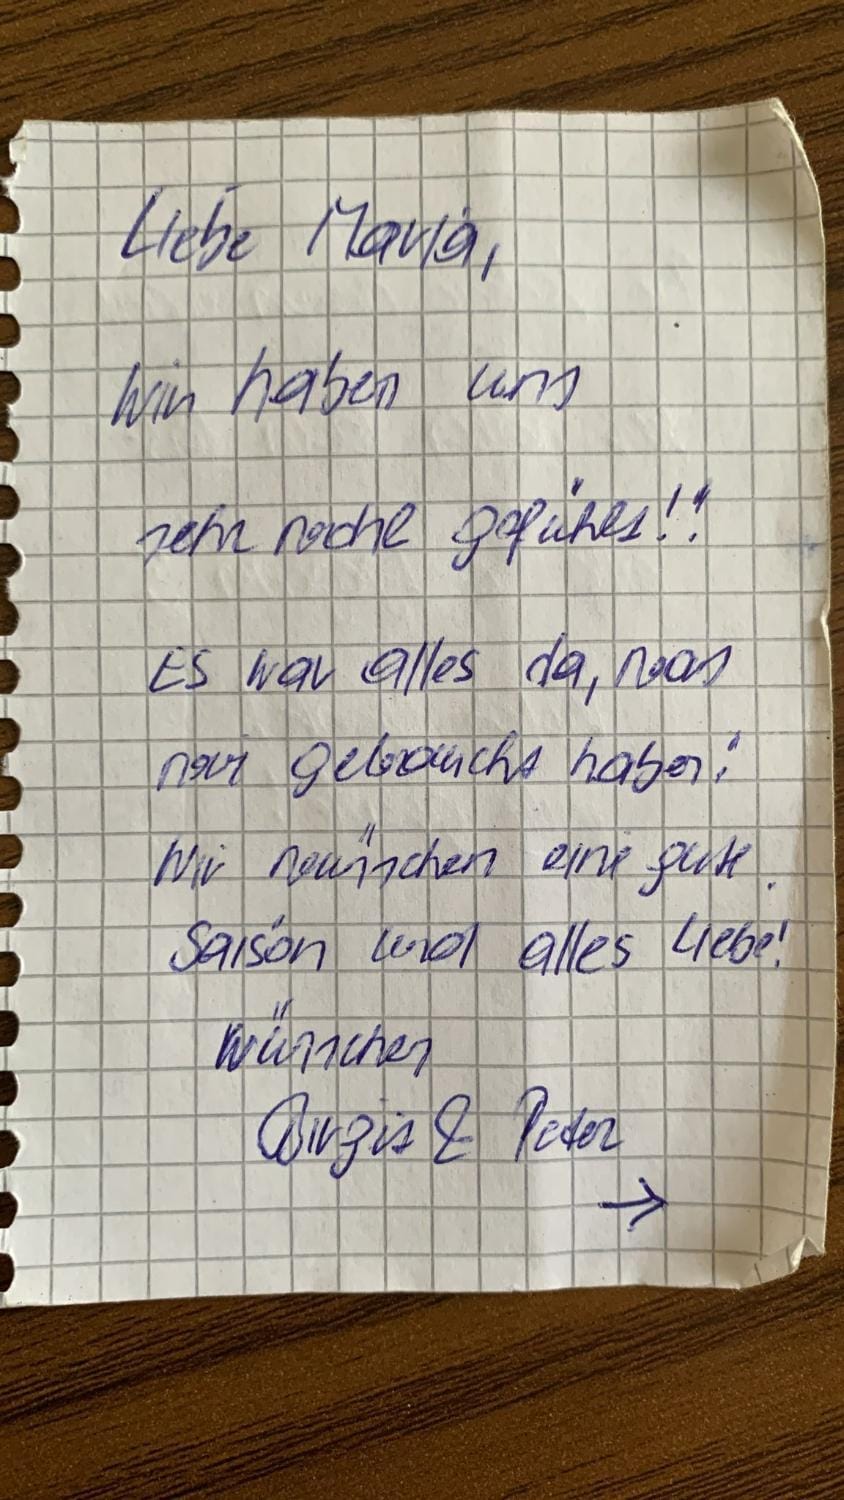 Liebe Maria,
Wir haben uns
sehr wohl gefühlt!!
Es war alles da, was
wir gebraucht haben!
Wir wünschen eine gute
Saison und alles Liebe!
wünschen
Birgit & Peter
→